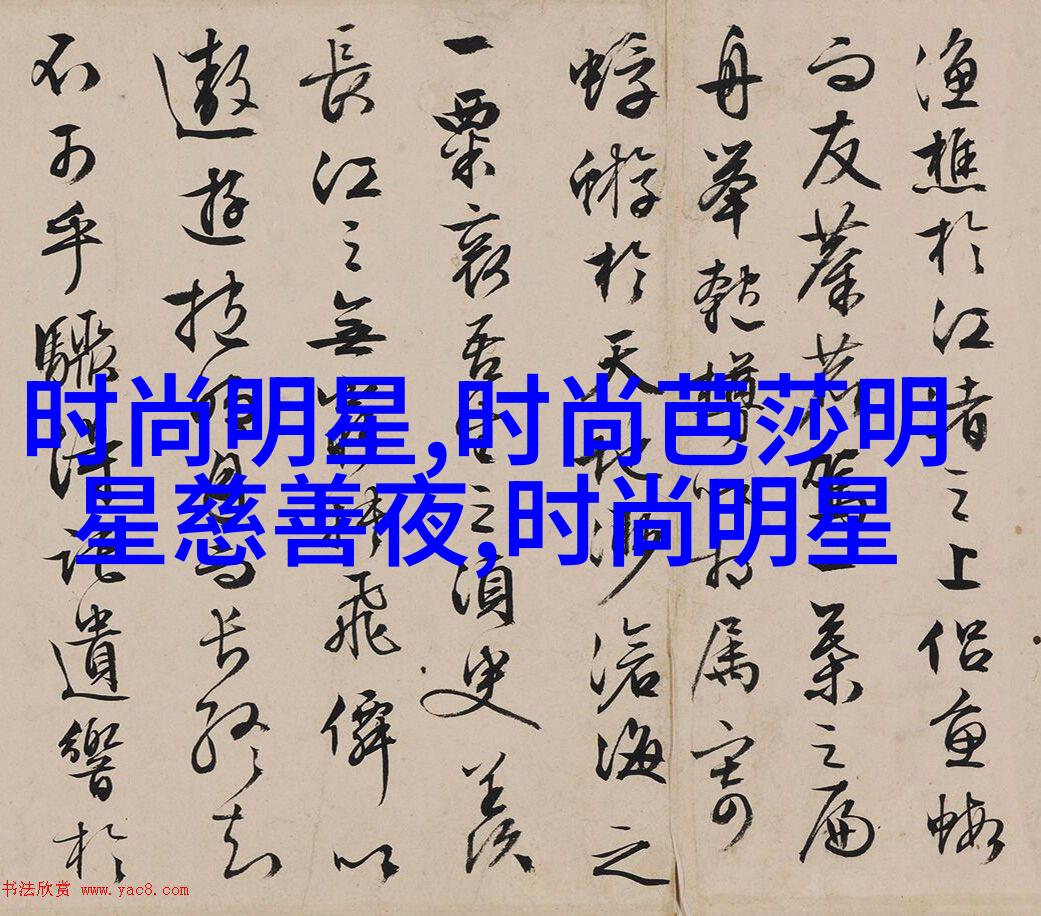 漁樵於江渚之上侣魚蝦
而友麋鹿駕一葉之扁
舟舉匏樽以相属寄
蜉蝣於天地渺滄海之
一粟哀吾生之須臾羨
長江之無窮挾飛僊以
遨遊抱明月而長終知
不可乎驟得託遺響於
时尚明星,时尚芭莎明
星慈善夜,时尚明星
书法欣赏 www.yac8.com